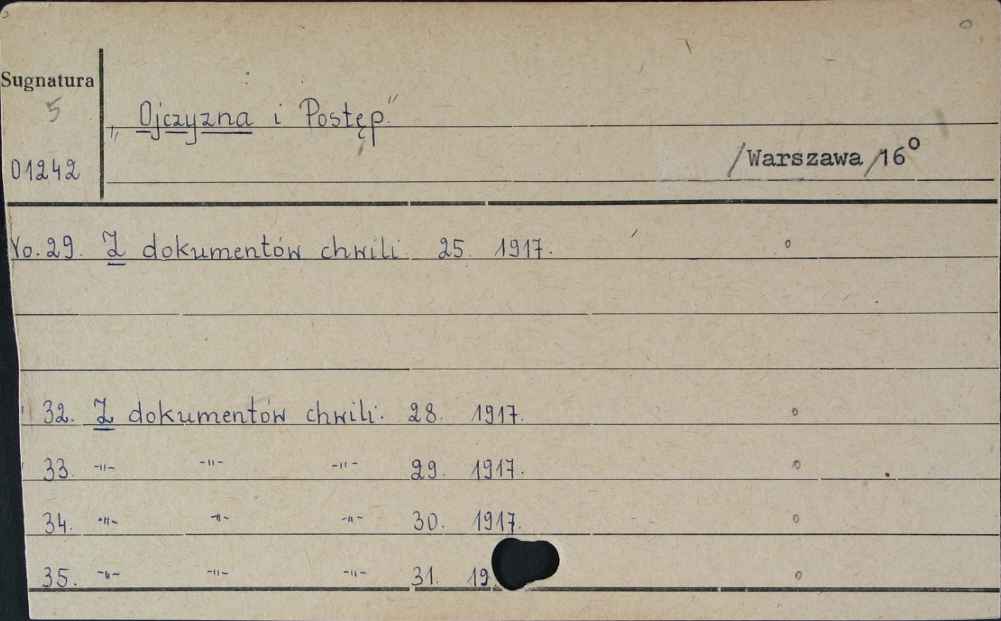 Sugnatura
5
„Ojczyzna i Postęp"
/Warszawa /16°
01242
No. 29. Z dokumentów chwili 25. 1917.
32. Z dokumentów chwili. 28. 1917.
33. -"- -"- -"- 29. 1917.
34. -"- -"- -"- 30. 1917.
35. -"- -"- -"- 31. 19